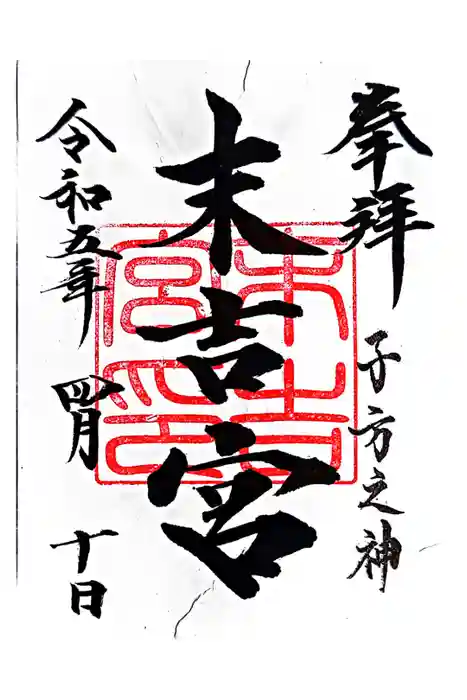 奉拝
子方之神
末吉宮
末吉宮印
令和五年 四月 十日